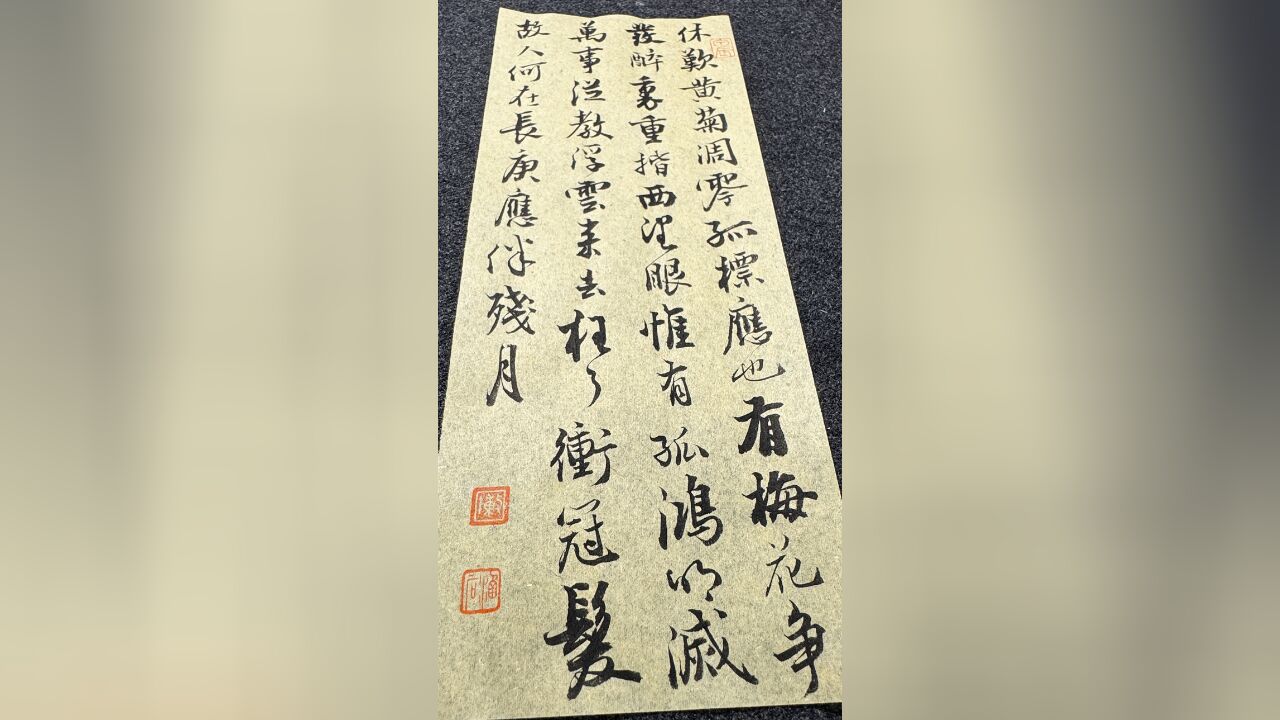 休歎黄菊凋零孤標應也有梅花争
發醉裏重揩西望眼惟有孤鴻明滅
萬事從教浮雲来去枉了衝冠髮
故人何在長庚應伴殘月